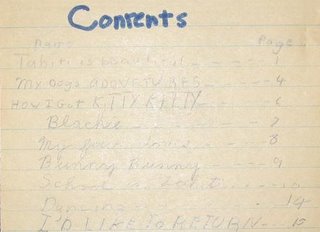 Contents
Name Page
Tahiti is beautiful 1
My Dogs ADDVETURES 4
How I Got KITTY KITTY 6
Blackie 7
My 8
Bunny Bunny 9
School in Tahiti
Dancing 14
I'D LIKE TO RETURN 15